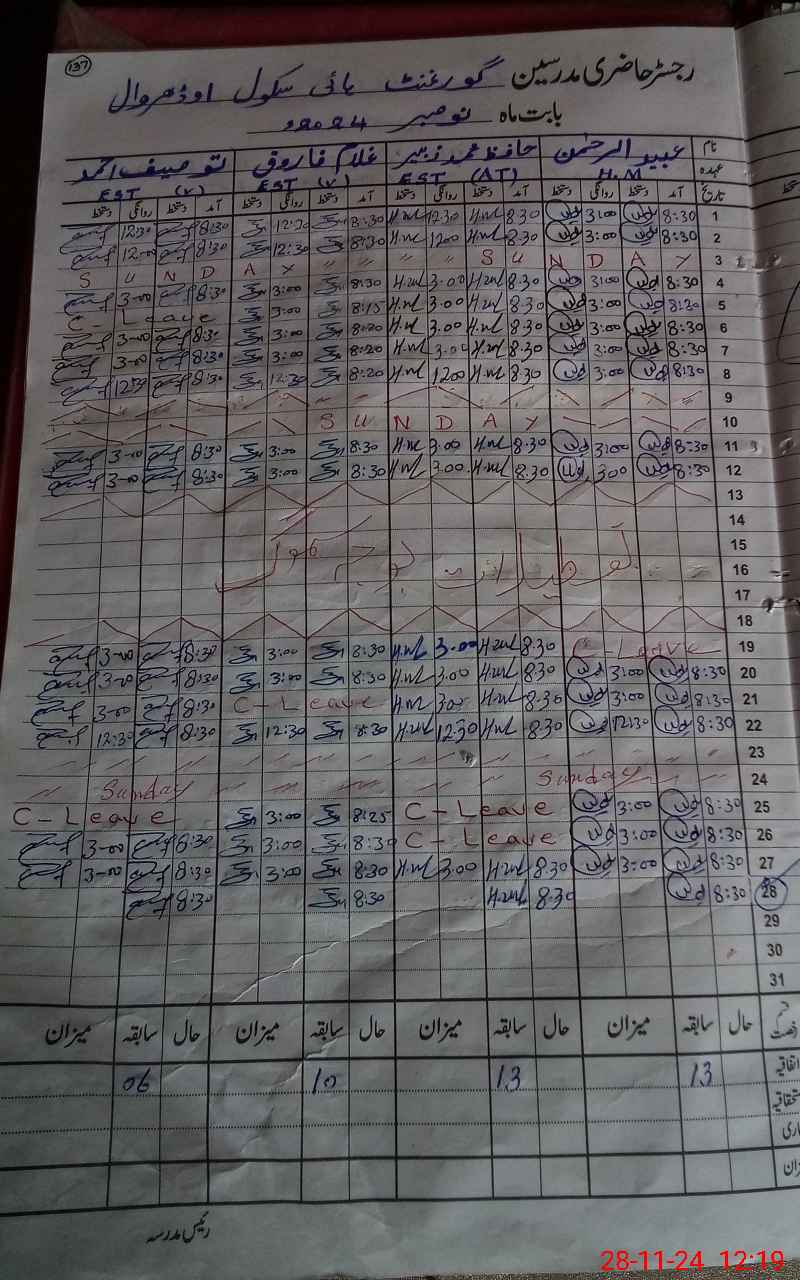 137
رجسٹر حاضری مدرسین گورنمنٹ ہائی سکول اوڈھروال
بابت ماہ نومبر 2024ء
نام عبید الرحمٰن حافظ محمد زبیر غلام فاروق توصیف احمد
عہدہ H.M EST (AT) EST (V) EST (V)
تاریخ آمد دستخط روانگی دستخط آمد دستخط روانگی دستخط آمد دستخط روانگی دستخط آمد دستخط روانگی دستخط
1 8:30 3:00 8.30 12.30 8:30 12:30 8:30 12:30
2 8:30 3:00 8.30 1200 8:30 12:30 8:30 12:00
3 S U N D A Y " " " S U N D A Y
4 8:30 3:00 8.30 3.00 8:30 3:00 8:30 3-00
5 8:30 3:00 8.30 3.00 8:15 3:00 C - Leave
6 8:30 3:00 8.30 3.00 8:20 3:00 8:30 3-00
7 8:30 3:00 8.30 3.00 8:20 3:00 8:30 3-00
8 8:30 3:00 8.30 1200 8:20 12:30 8:30 12:30
9
10 S U N D A Y
11 8:30 3:00 8.30 3.00 8:30 3:00 8:30 3-00
12 8:30 3:00 8.30 3.00 8:30 3:00 8:30 3-00
13
14
15
16 تعطیلات بوجہ سموگ
17
18
19 C - Leave 8.30 3.00 8:30 3:00 8:30 3-00
20 8:30 3:00 8.30 3.00 8:30 3:00 8:30 3-00
21 8:30 3:00 8.30 3.00 C - Leave 8:30 3-00
22 8:30 12:30 8.30 12.30 8:30 12:30 8:30 12:30
23
24 Sunday Sunday
25 8:30 3:00 C - Leave 8:25 3:00 C - Leave
26 8:30 3:00 C - Leave 8:30 3:00 8:30 3-00
27 8:30 3:00 8.30 3.00 8:30 3:00 8:30 3-00
28 8:30 8.30 8:30 8:30
29
30
31
حال سابقہ میزان حال سابقہ میزان حال سابقہ میزان حال سابقہ میزان
13 13 10 06
رئیس مدرسہ
28-11-24 12:19